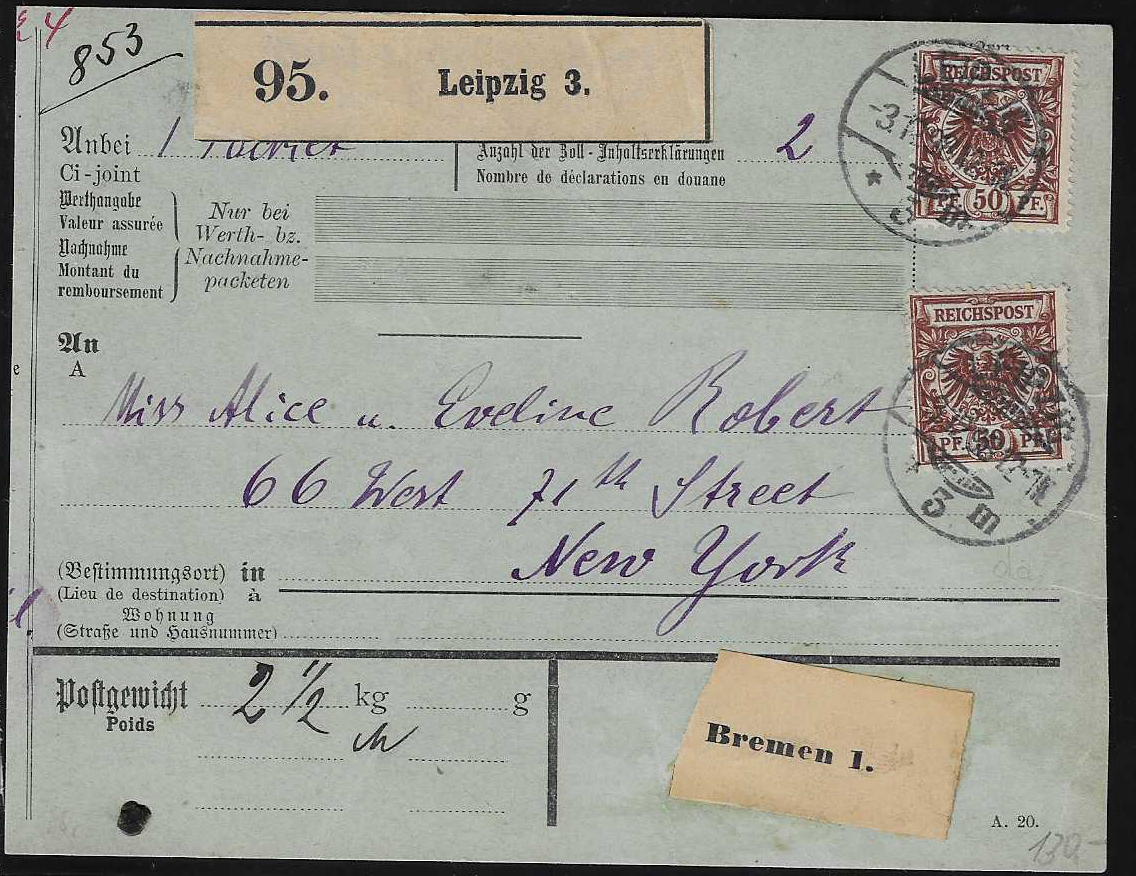 853
95. Leipzig 3.
Anbei 1
Ci-joint
Anzahl der Zoll-Inhaltserklärungen 2
Nombre de déclarations en douane
Werthangabe
Valeur assurée
Nachnahme
Montant du
remboursement
Nur bei
Werth- bz.
Nachnahme-
packeten
REICHSPOST
50 PF.
REICHSPOST
PF. 50 PF.
3 m
An
A
Miss Alice u. Eveline Robert
66 West 71th Street
New York
(Bestimmungsort) in
(Lieu de destination) à
Wohnung
(Straße und Hausnummer)
Postgewicht 2 1/2 kg g
Poids
Bremen 1.
A. 20.
130-